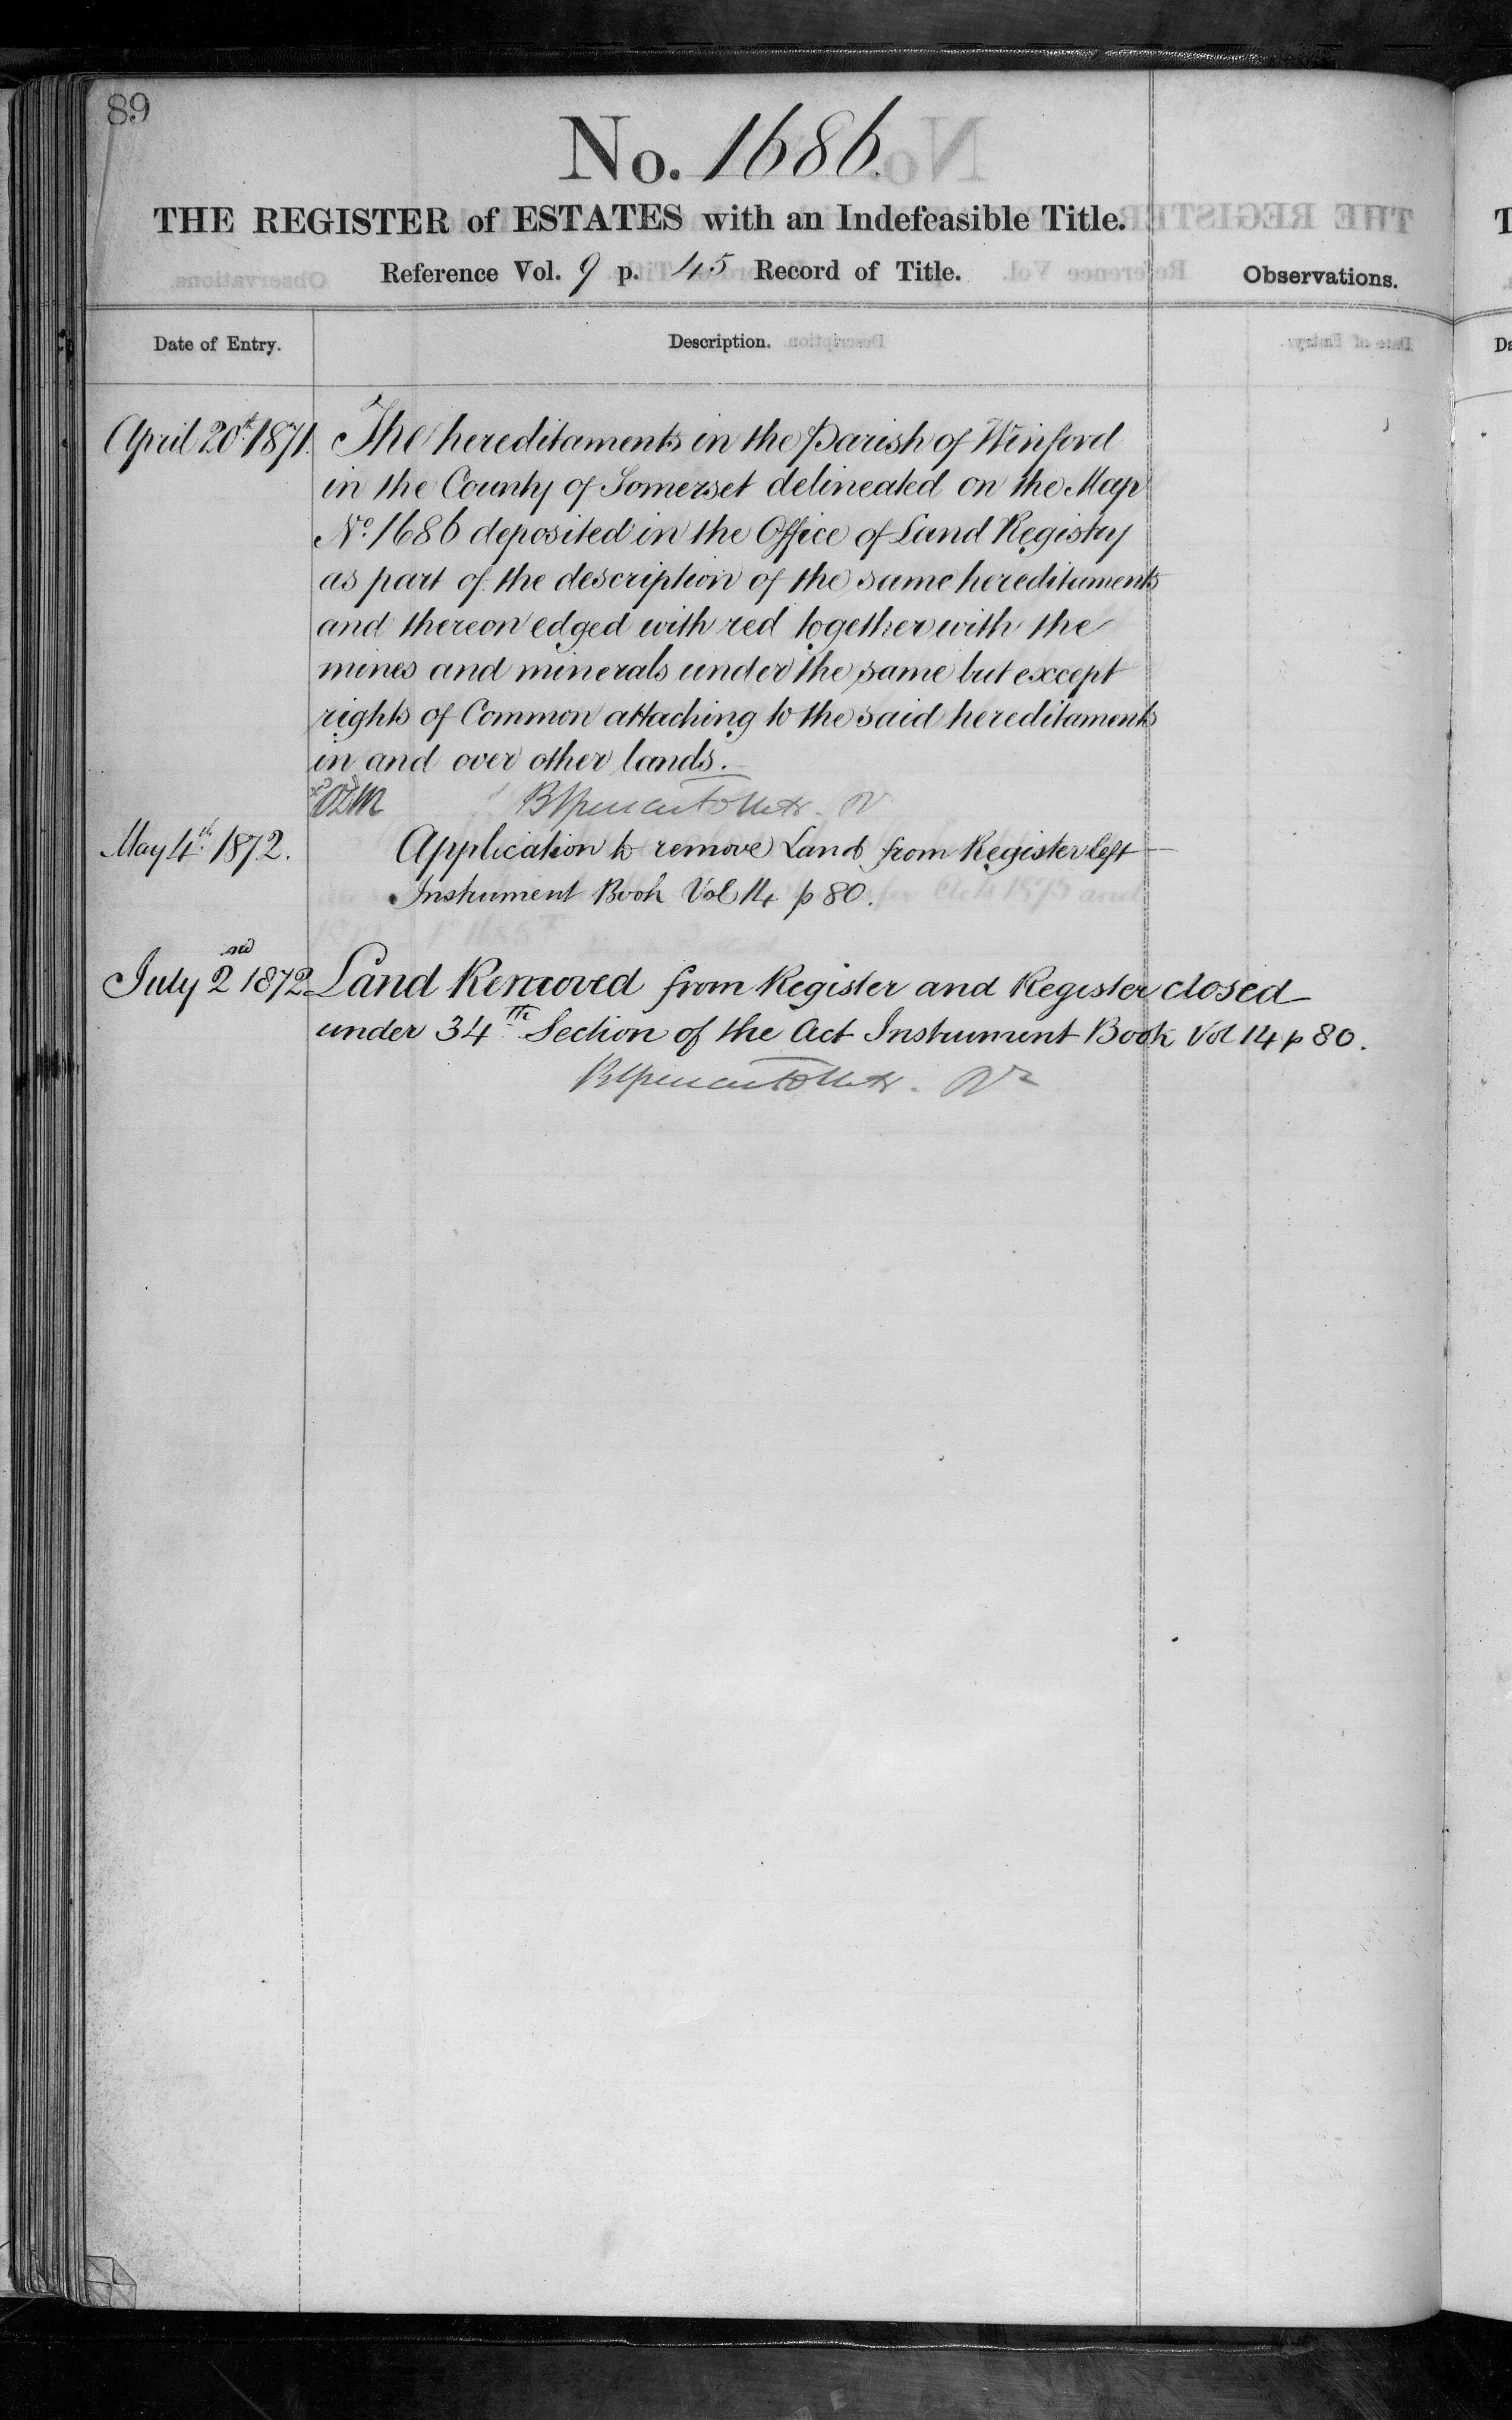 89
No. 1686.
THE REGISTER of ESTATES with an Indefeasible Title.
Reference Vol. 9 p. 45 Record of Title.
Observations.
Date of Entry.
Description.
April 20th 1871. The hereditaments in the Parish of Winford
in the County of Somerset delineated on the Map
No. 1686 deposited in the Office of Land Registry
as part of the description of the same hereditaments
and thereon edged with red together with the
mines and minerals under the same but except
rights of Common attaching to the said hereditaments
in and over other lands.
May 4th 1872. Application to remove Land from Register left
Instrument Book Vol 14 p 80.
July 2nd 1872 Land Removed from Register and Register closed
under 34th Section of the Act Instrument Book Vol 14 p 80.